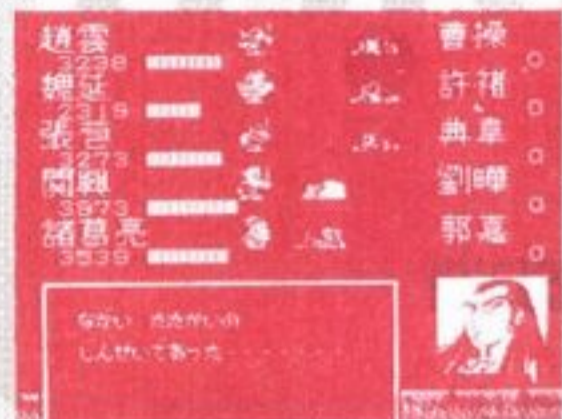 趙雲
3238
魏延
2319
張苞
3273
関興
3873
諸葛亮
3539
曹操
0
許褚
0
典韋
0
劉曄
0
郭嘉
0
ながい たたかいの
しんせいであった・・・・・・・・